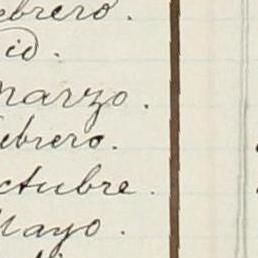 ebrero.
id.
Marzo.
ebrero.
ctubre.
Mayo.